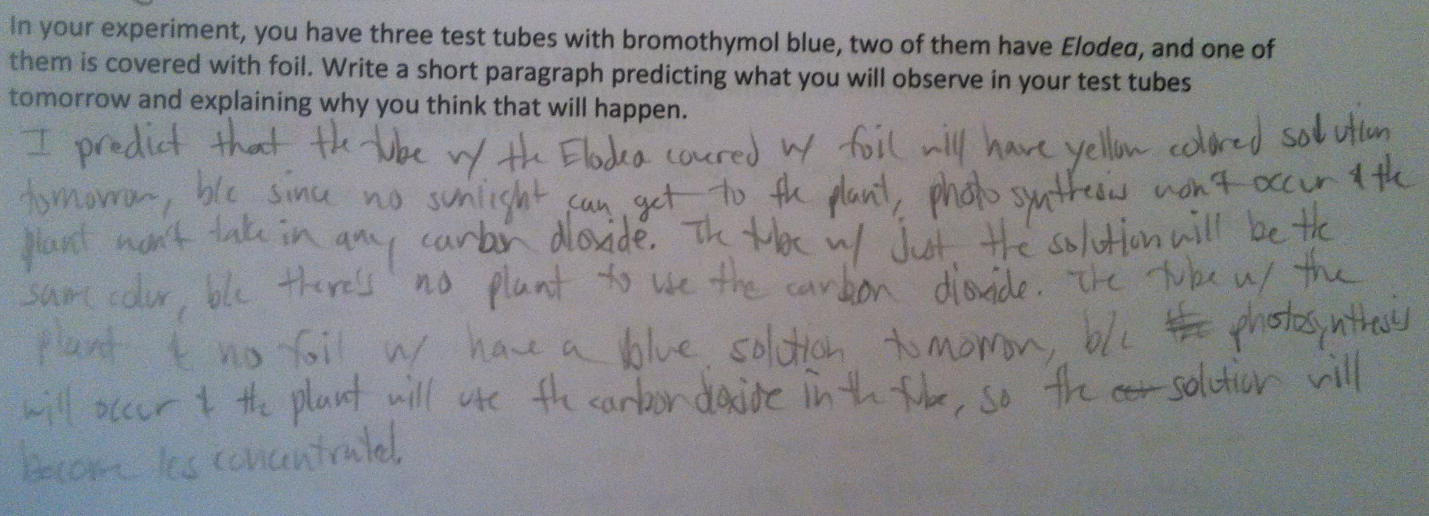 In your experiment, you have three test tubes with bromothymol blue, two of them have Elodea, and one of
them is covered with foil. Write a short paragraph predicting what you will observe in your test tubes
tomorrow and explaining why you think that will happen.
I predict that the tube w/ the Elodea covered w/ foil will have yellow colored solution
tomorrow, b/c since no sunlight can get to the plant, photosynthesis won't occur & the
plant won't take in any carbon dioxide. The tube w/ just the solution will be the
same color, b/c there's no plant to use the carbon dioxide. The tube w/ the
plant & no foil w/ have a blue solution tomorrow, b/c photosynthesis
will occur & the plant will use the carbon doxide in the tube, so the solution will
become les concentrated.